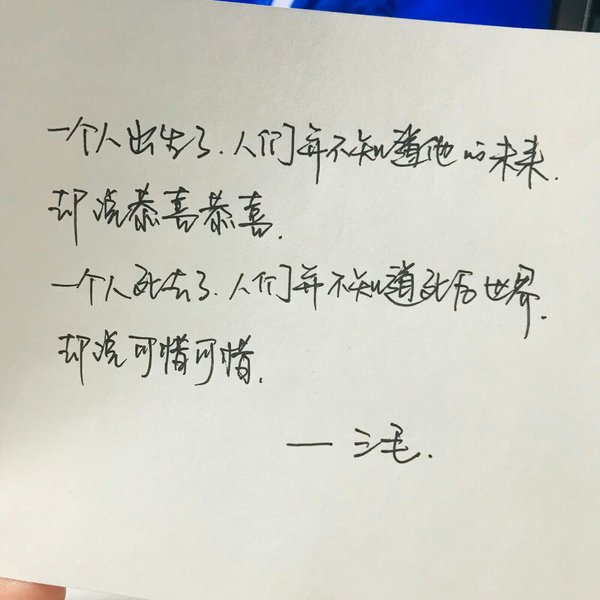 一个人出生了.人们并不知道他的未来.
却说恭喜恭喜.
一个人死去了.人们并不知道死后世界.
却说可惜可惜.
—三毛.